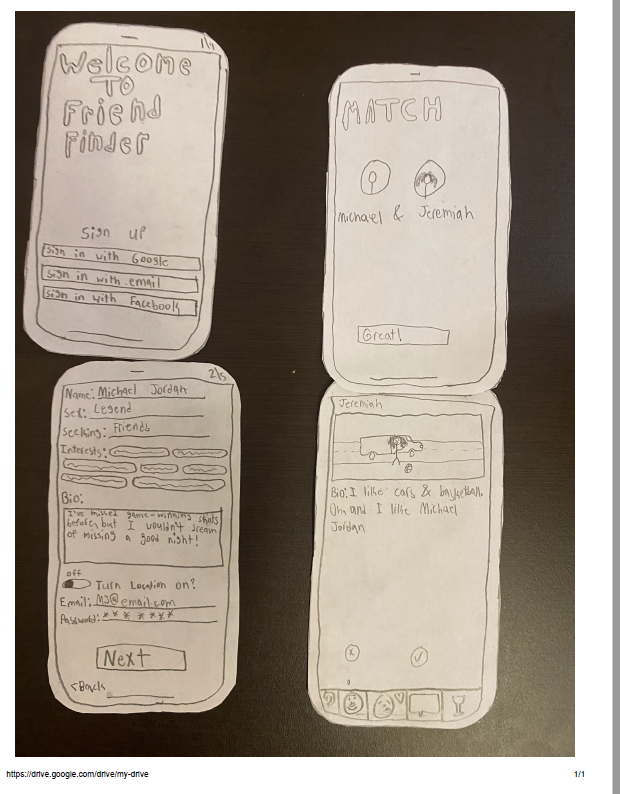 1/5
Welcome
To
Friend
Finder
Sign up
Sign in with Google
Sign in with email
Sign in with Facebook
2/5
Name: Michael Jordan
Sex: Legend
Seeking: Friends
Interests:
Bio:
I've missed game-winning shots
before, but I wouldn't dream
of missing a good night!
off
Turn Location on?
Email: MJ@email.com
Password: *******
Next
<Back
MATCH
Michael & Jeremiah
Great!
Jeremiah
Bio: I like cars & basketball.
Oh, and I like Michael
Jordan
https://drive.google.com/drive/my-drive
1/1